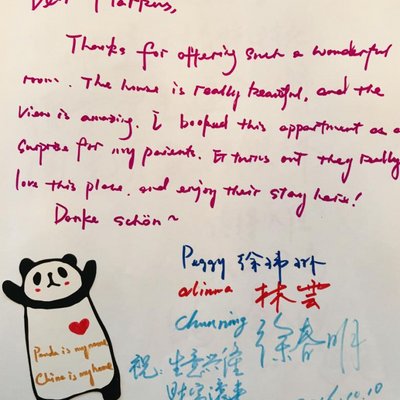 Dear Markus,
Thanks for offering such a wonderful
room. The house is really beautiful, and the
view is amazing. I booked this appartment as a
surprise for my parents. It turns out they really
love this place, and enjoy their stay here!
Danke schön~
Peggy 徐
林芸
Chunming 徐春明
祝: 生意兴隆
财
10.10
Panda is my name
China is my home